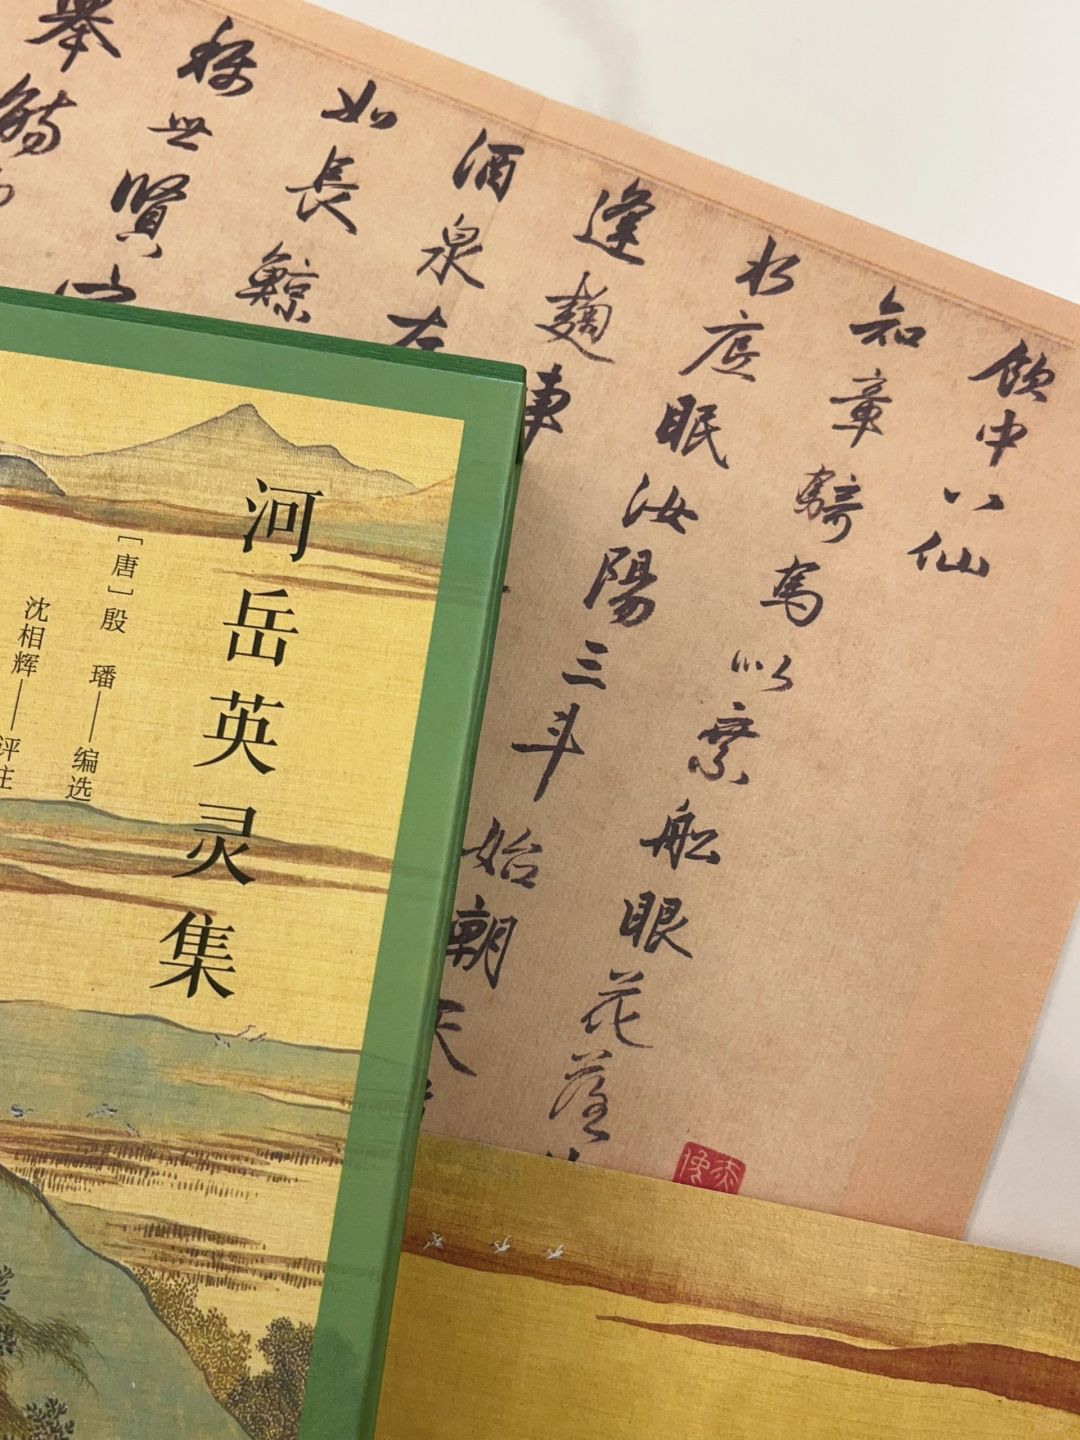 飲中八仙
知章騎馬似乘船眼花落
水底眠汝陽三斗始朝天
逢麴車
酒泉左
如長鯨
稱世賢
舉觴
河岳英灵集
［唐］殷 璠——编选
沈相辉——评注